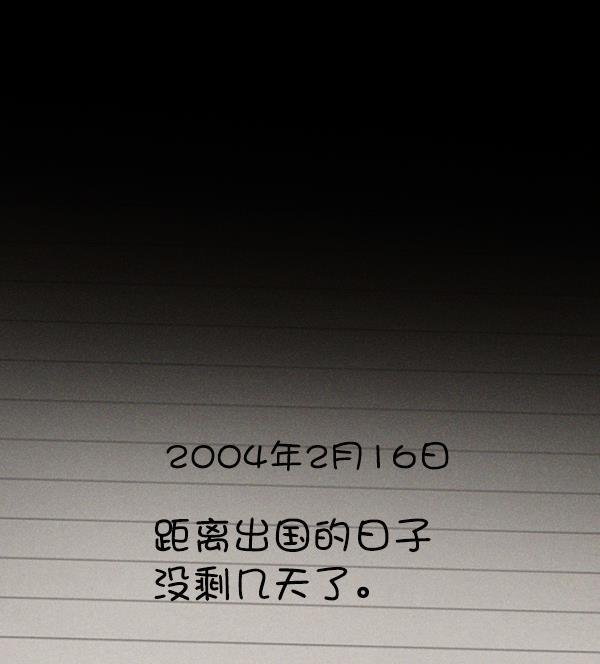 2004年2月16日
距离出国的日子
没剩几天了。